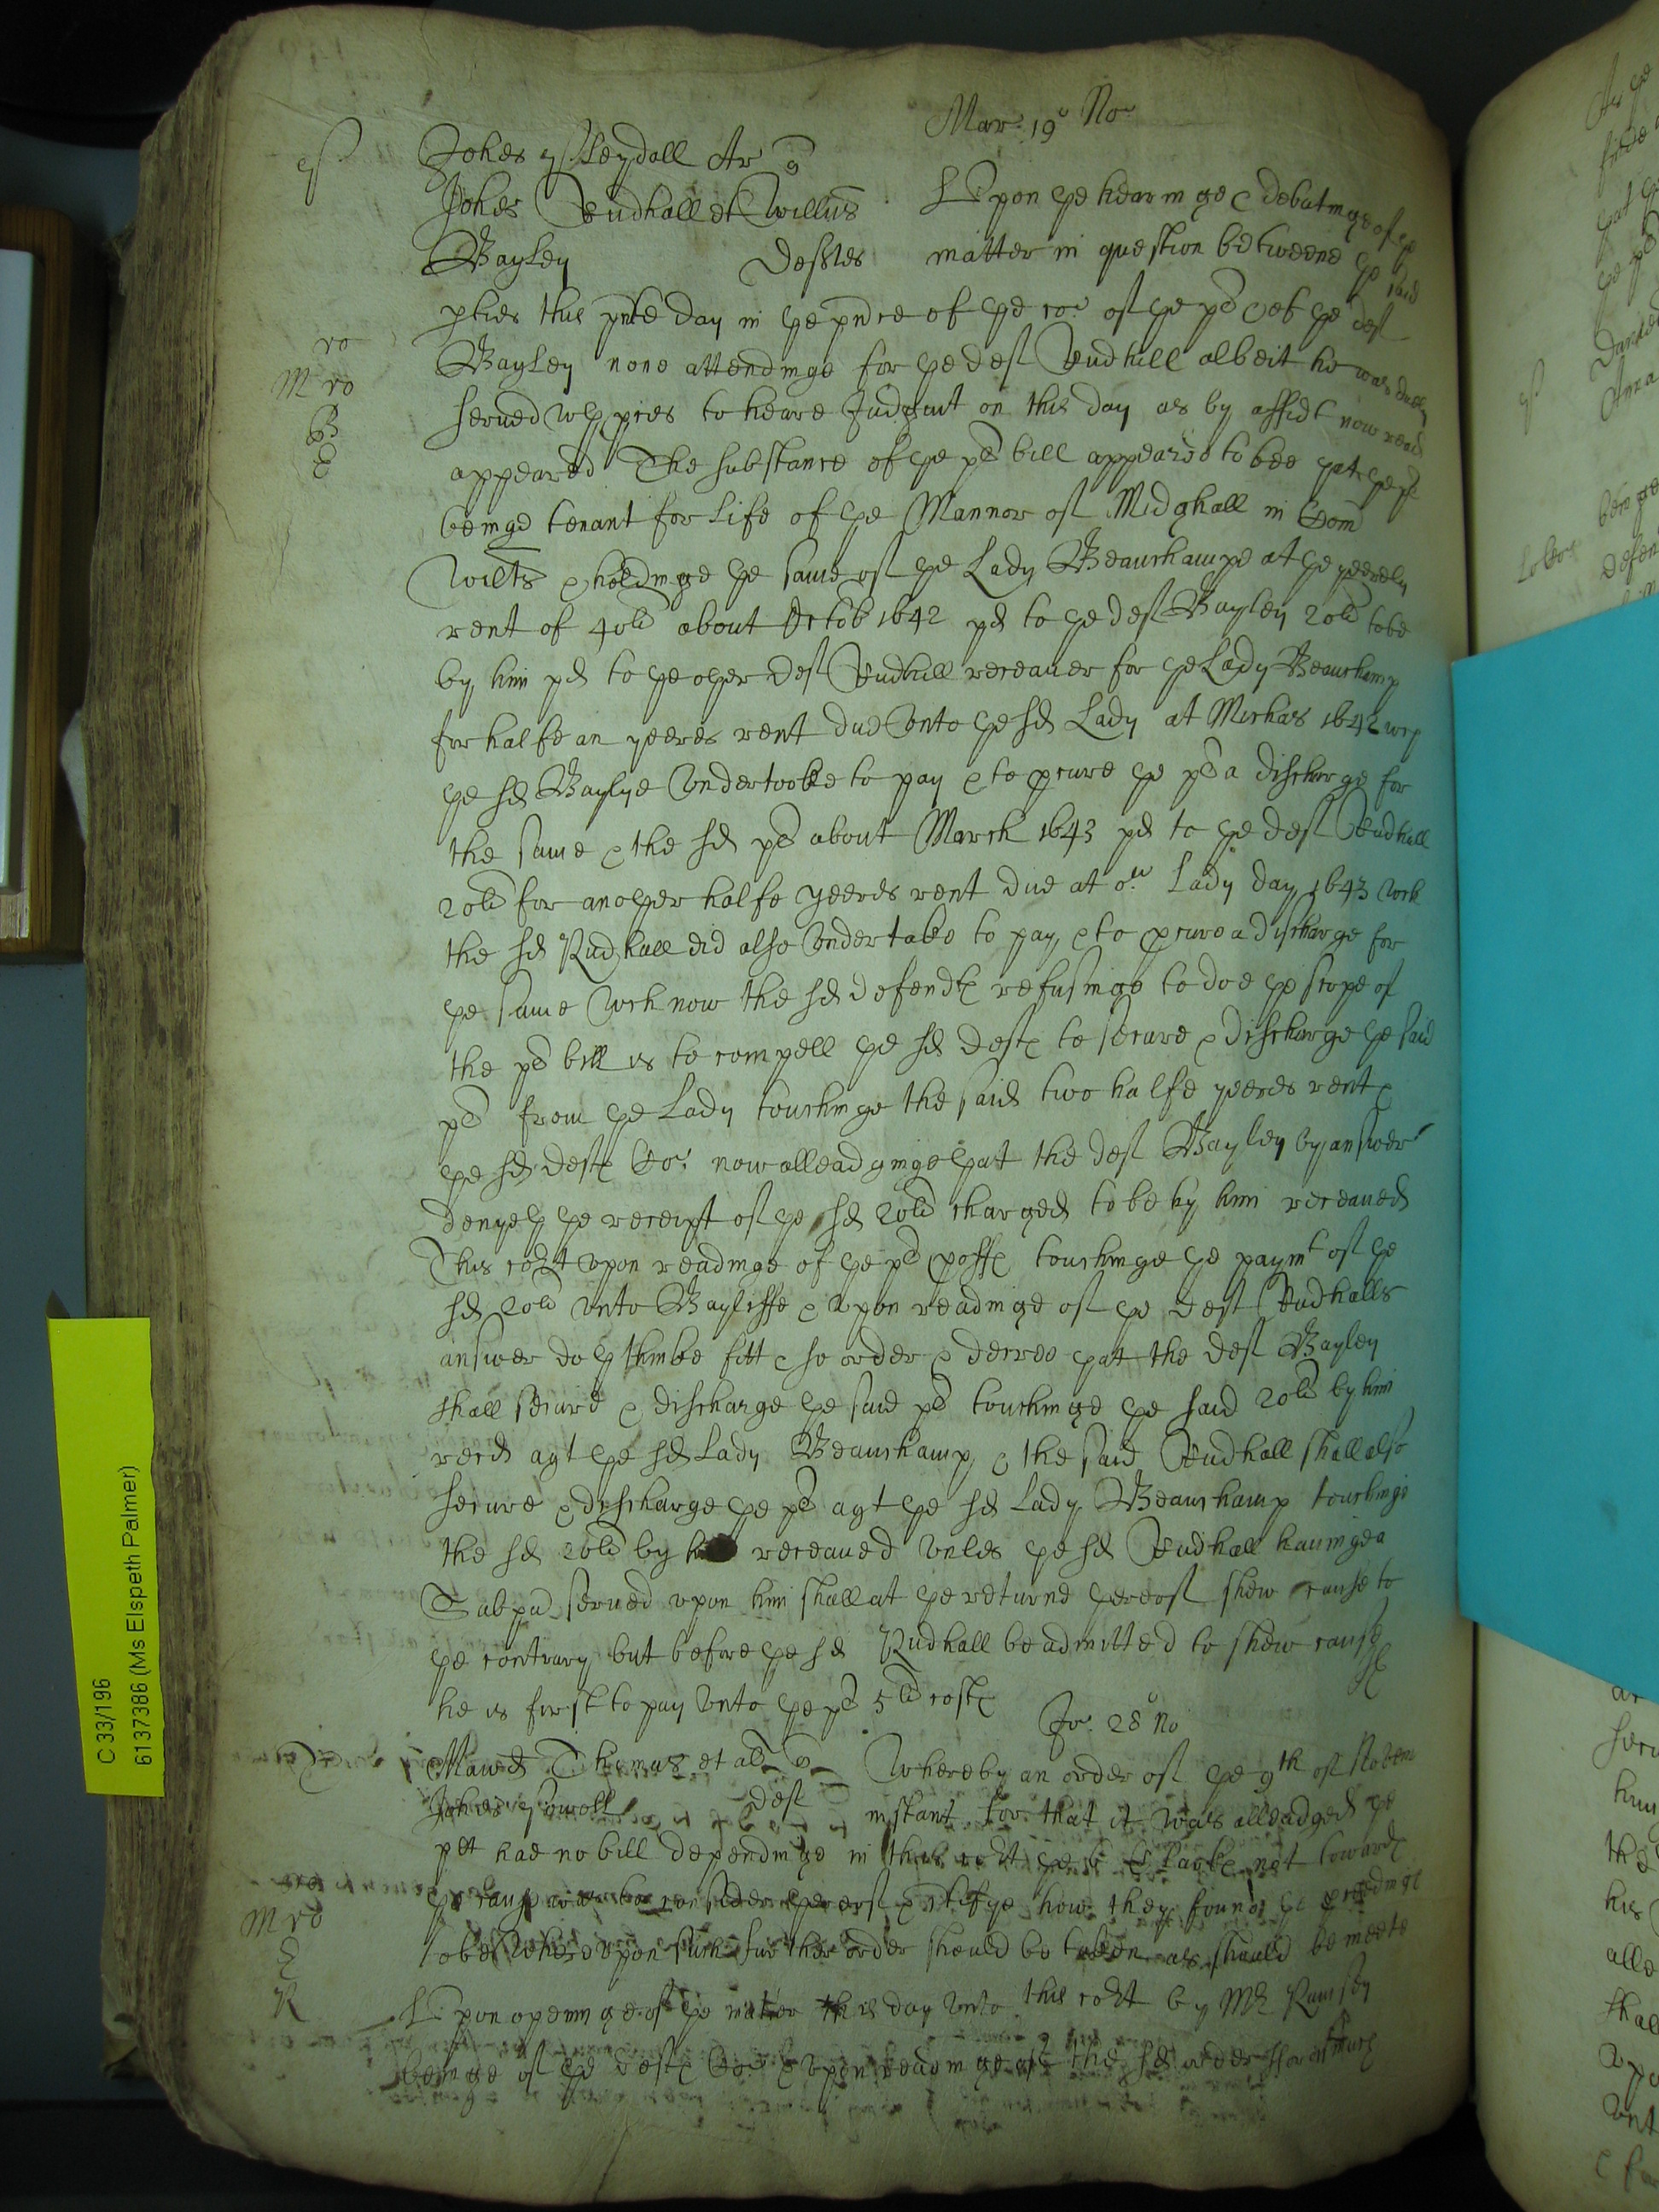 Mar. 19° No
Johes Pleydall Ar q
Johes Rudhall et Willus Upon ye hearinge & debatinge of ye
Bayley Deftes matter in question betweene ye said
pties this pnte day in ye pnce of ye co: of ye pt & of ye deft
Bayley none attendinge for ye deft Rudhall albeit he was duely
served wth pces to heare Judgmt on this day as by affidt now read
appeared The substance of ye pts bill appeared to bee yat ye pt
beinge tenant for life of ye Mannor of Midghall in Com
Wilts & holdinge ye same of ye Lady Beauchampe at ye yeerely
rent of 40li about Octob 1642 pd to ye deft Bayley 20li to be
by him pd to ye oyer deft Rudhall receaver for ye Lady Beauchamp
for halfe an yeeres rent due unto ye sd Lady at Michas 1642 wch
ye sd Baylye undertooke to pay & to pcure ye pt a discharge for
the same & the sd pt about March 1643 pd to ye deft Rudhall
20li for anoyer halfe yeeres rent due at or Lady day 1643 wch
the sd Rudhall did also undertake to pay & to pcure a discharge for
ye same wch now the sd defendts refusinge to doe ye scope of
the pts bill is to compell ye sd defts to secure & discharge ye said
pt from ye Lady touchinge the said two halfe yeeres rents
ye sd defts Co: now alleadginge yat the deft Bayley by answer
denyeth ye receipt of ye sd 20li charged to be by him receaved
This cort upon readinge of ye pts proffs touchinge ye paymt of ye
sd 20li unto Bayliffe & upon readinge of ye deft Rudhalls
answer doth thinke fitt & so order & decree yat the deft Bayley
shall secure & discharge ye said pt touchinge ye said 20li by him
recd agt ye sd Lady Beauchamp & the said Rudhall shall also
secure & discharge ye pt agt ye sd Lady Beauchamp touchinge
the sd 20li by receaved unles ye sd Rudhall havinge a
Subpa served upon him shall at ye returne yereof shew cause to
ye contrary but before ye sd Rudhall be admitted to shew cause
he is first to pay unto ye pt 5li costs
28° No
Thomas et al q Whereby an order of ye 9th of Novem
Johes Powell deft instant for that it was alleadged ye
pt had no bill dependinge in this cort ye 6 Clarks not towards
ye cause were to consider yereof & certifye how they found ye pceedings
to be Whereupon such further order should be taken as should be meete
Upon openinge of ye matter this day unto this cort by Mr Ramsey
beinge of ye defts Co: & upon readinge of the sd order
ro
M ro
B
M ro
R
C 33/196
6137386 (Ms Elspeth Palmer)